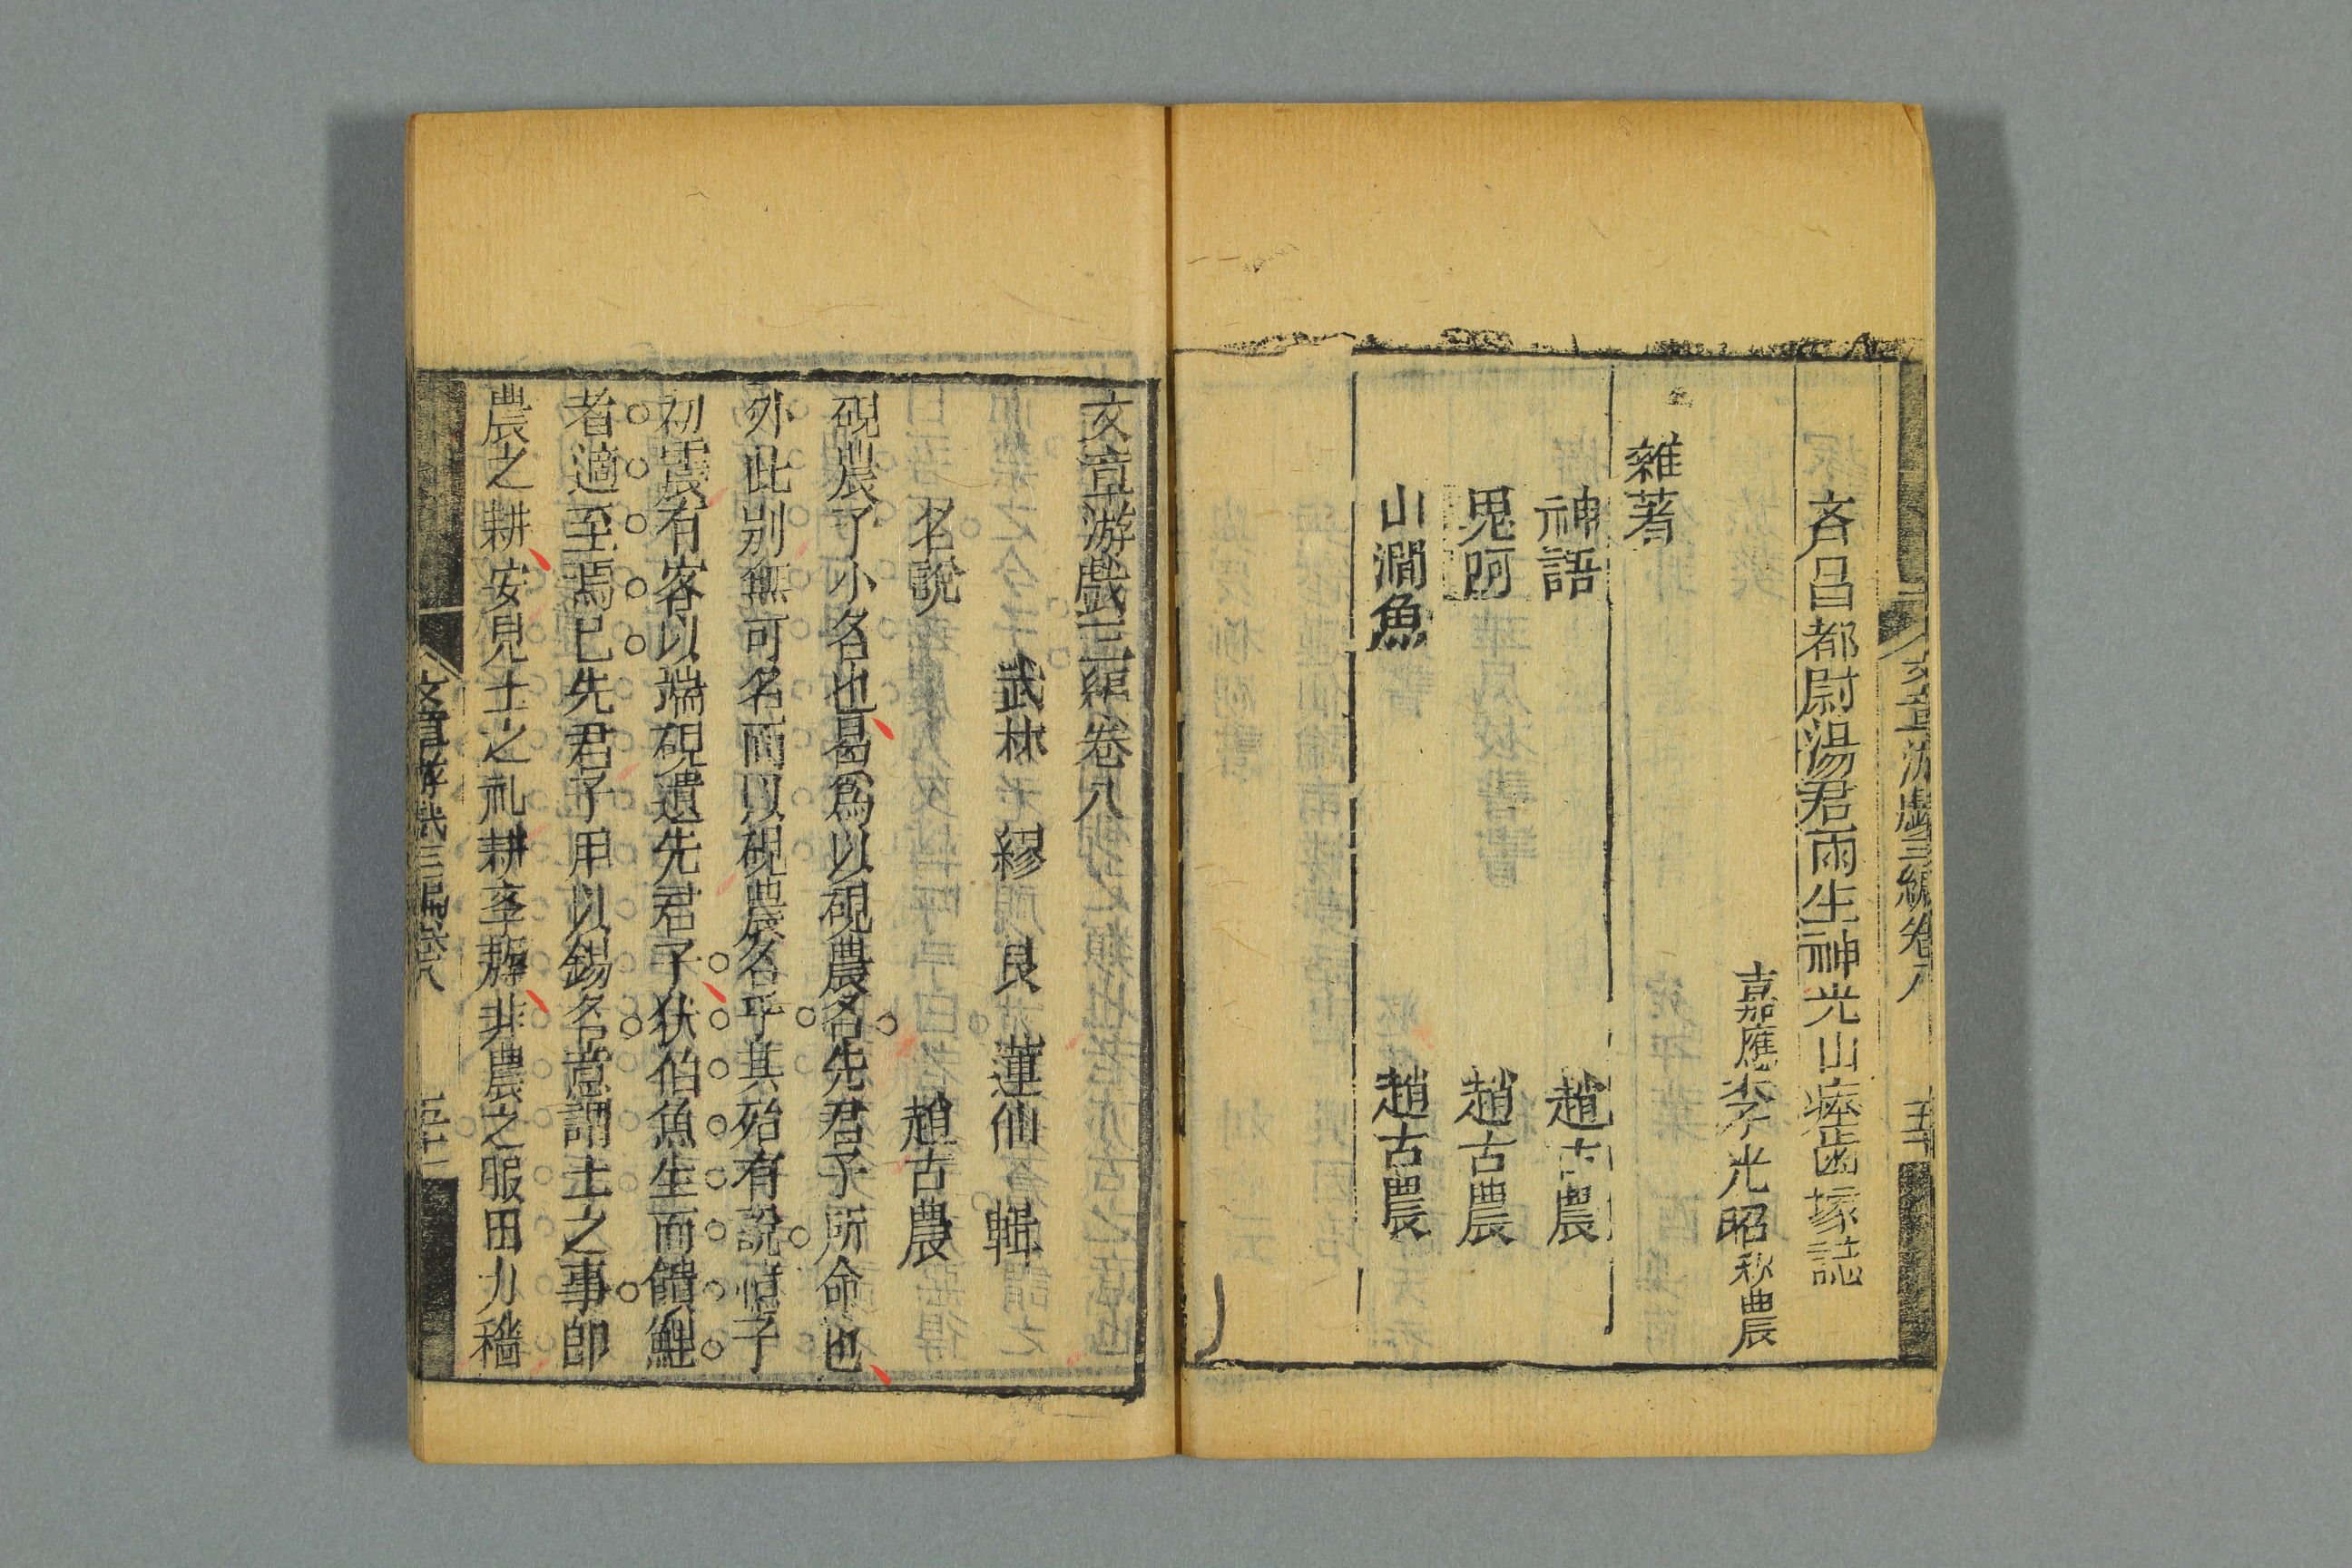 文章游戲三編卷八 五十
斉昌都尉湯君雨生神光山瘞齒塚誌
嘉應李光昭秋農
雜著
神語 趙古農
鬼呵 趙古農
山澗魚 趙古農
文章游戲三編卷八
武林 繆艮 蓮仙 輯
名說 趙古農
硯農了小名也曷爲以硯農名先君子所命也
外此別無可名而以硯農名乎其殆有說焉子
初震有客以端硯遺先君子了狀伯魚生而饋鯉
者適至焉已先君子用以錫名意謂士之事卽
農之耕安見士之礼耕孝耨非農之服田力穡
文章游戲三編卷八